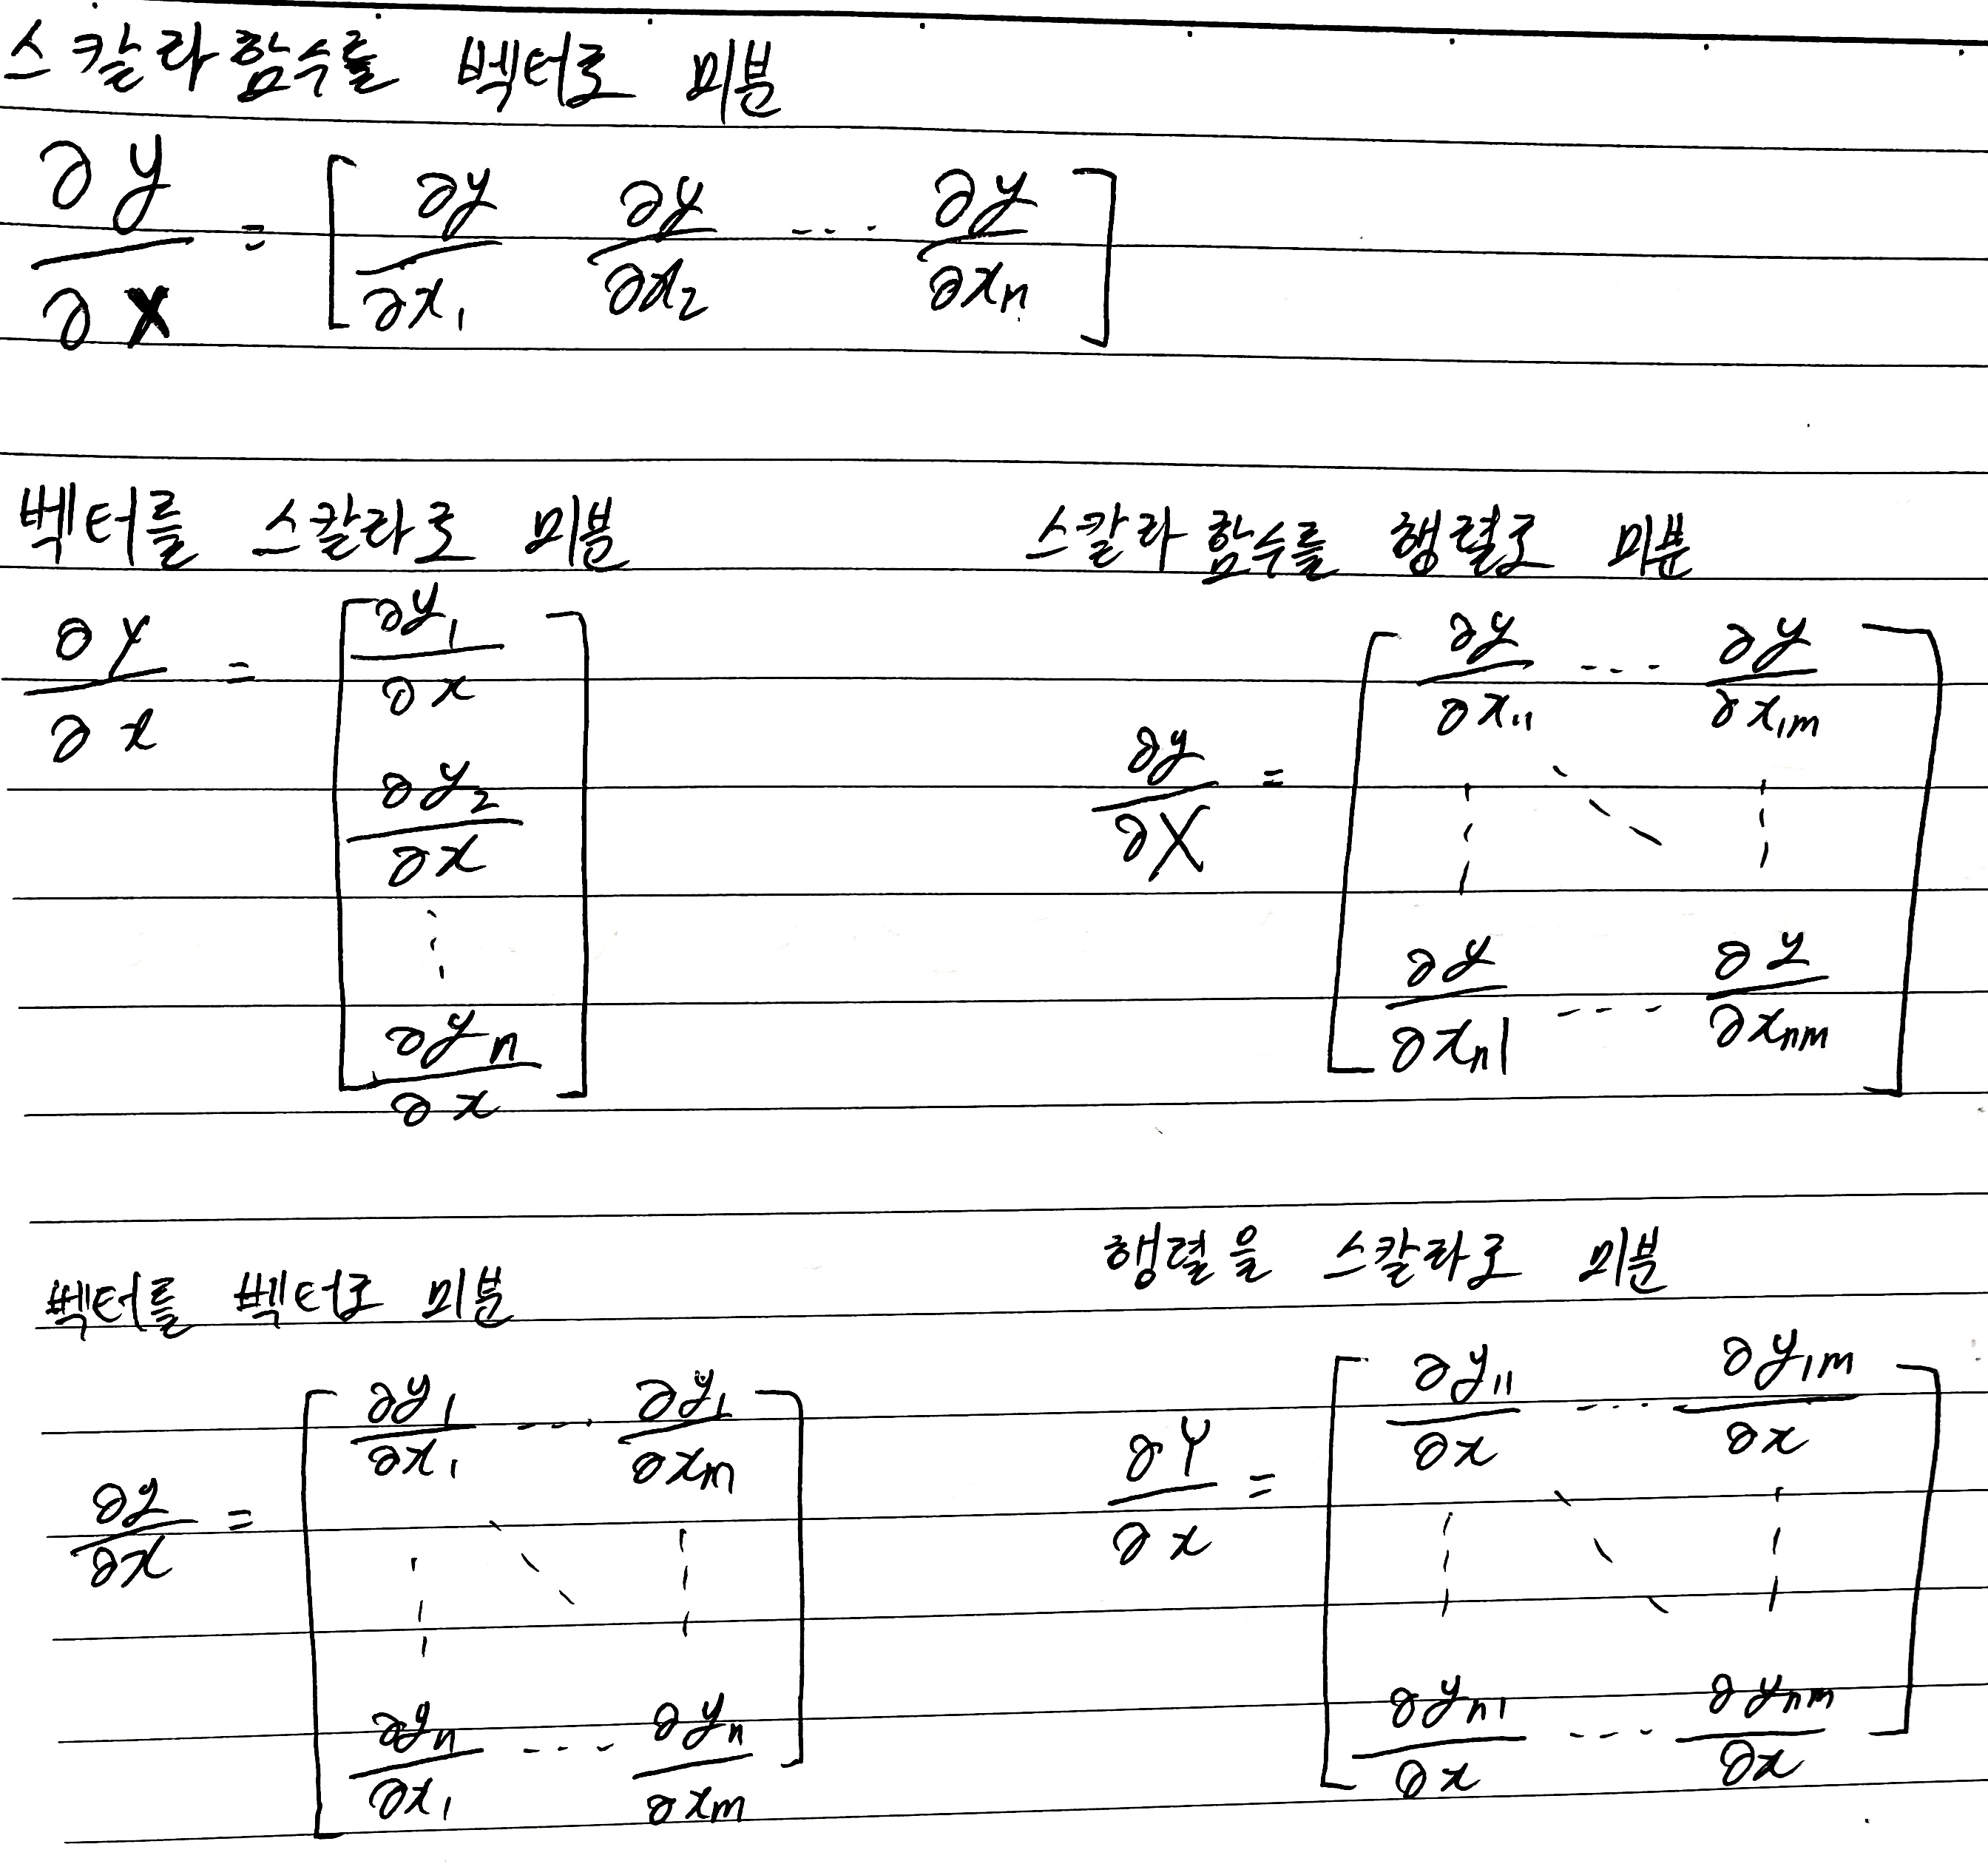 스칼라 함수를 벡터로 미분
∂y/∂x = [ ∂y/∂x₁ ∂y/∂x₂ ... ∂y/∂xₙ ]
벡터를 스칼라로 미분
∂y/∂x = [ ∂y₁/∂x
∂y₂/∂x
⋮
∂yₙ/∂x ]
스칼라 함수를 행렬로 미분
∂y/∂X = [ ∂y/∂x₁₁ ... ∂y/∂x₁ₘ
⋮ ⋱ ⋮
∂y/∂xₙ₁ ... ∂y/∂xₙₘ ]
벡터를 벡터로 미분
∂y/∂x = [ ∂y₁/∂x₁ ... ∂y₁/∂xₘ
⋮ ⋱ ⋮
∂yₙ/∂x₁ ... ∂yₙ/∂xₘ ]
행렬을 스칼라로 미분
∂Y/∂x = [ ∂y₁₁/∂x ... ∂y₁ₘ/∂x
⋮ ⋱ ⋮
∂yₙ₁/∂x ... ∂yₙₘ/∂x ]